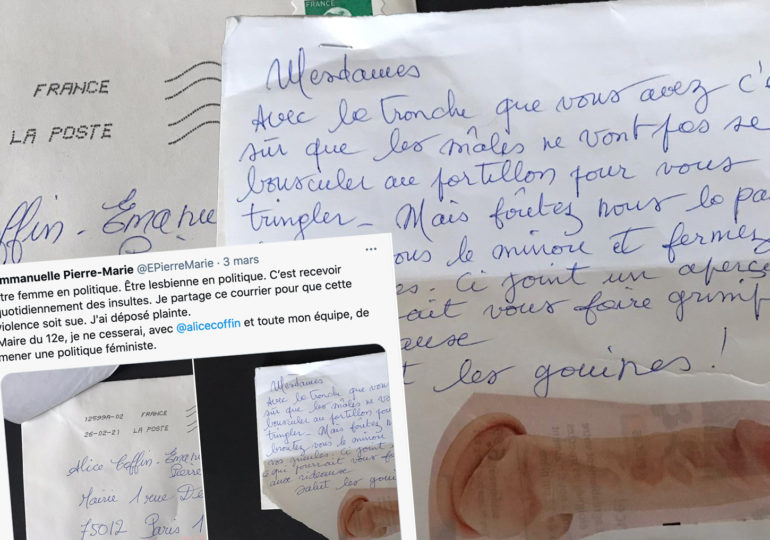 FRANCE
FRANCE
LA POSTE
Mesdames
Avec la tronche que vous avez c'e
sûr que les mâles ne vont pas se
bousculer au portillon pour vous
tringler - Mais foutez nous la pa
ous le minou et fermez
s. Ci joint un aperç
ait vous faire grimp
ause
t les gouines !
offin - Emanue
mmanuelle Pierre-Marie @EPierreMarie · 3 mars
tre femme en politique. Être lesbienne en politique. C'est recevoir
quotidiennement des insultes. Je partage ce courrier pour que cette
violence soit sue. J'ai déposé plainte.
Maire du 12e, je ne cesserai, avec @alicecoffin et toute mon équipe, de
mener une politique féministe.
12599A-02 FRANCE
26-02-21 LA POSTE
Alice Coffin - Eman
Pierre
Mairie 1 rue De
75012 Paris 1
Mesdames
Avec la tronche que vous
sûr que les mâles ne vo
bousculer au portillon pou
tringler - Mais foutez
broutez vous le minou
vos gueules. Ci joint
ce qui pourrait vous f
aux rideause
Salut les goui